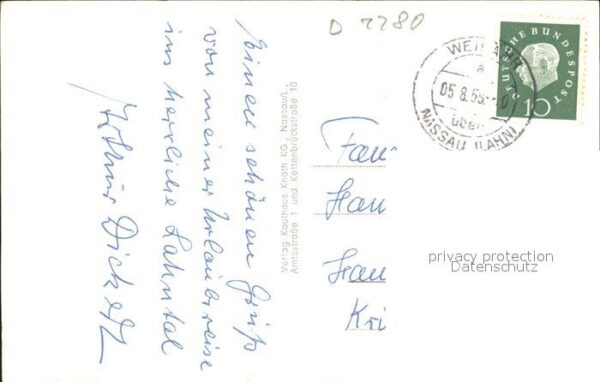 D 7280
Einen schönen Gruß
von meiner Urlaubsreise
ins herrliche Lahntal
Dick
Verlag Kaufhaus Knoth KG., Nassau/L.,
Amtsstraße 1 und Kettenbrückstraße 10
Fam
Han
Han
Kri
DEUTSCHE BUNDESPOST
10
WEI
a
05.8.59.
über
NASSAU (LAHN)
privacy protection
Datenschutz